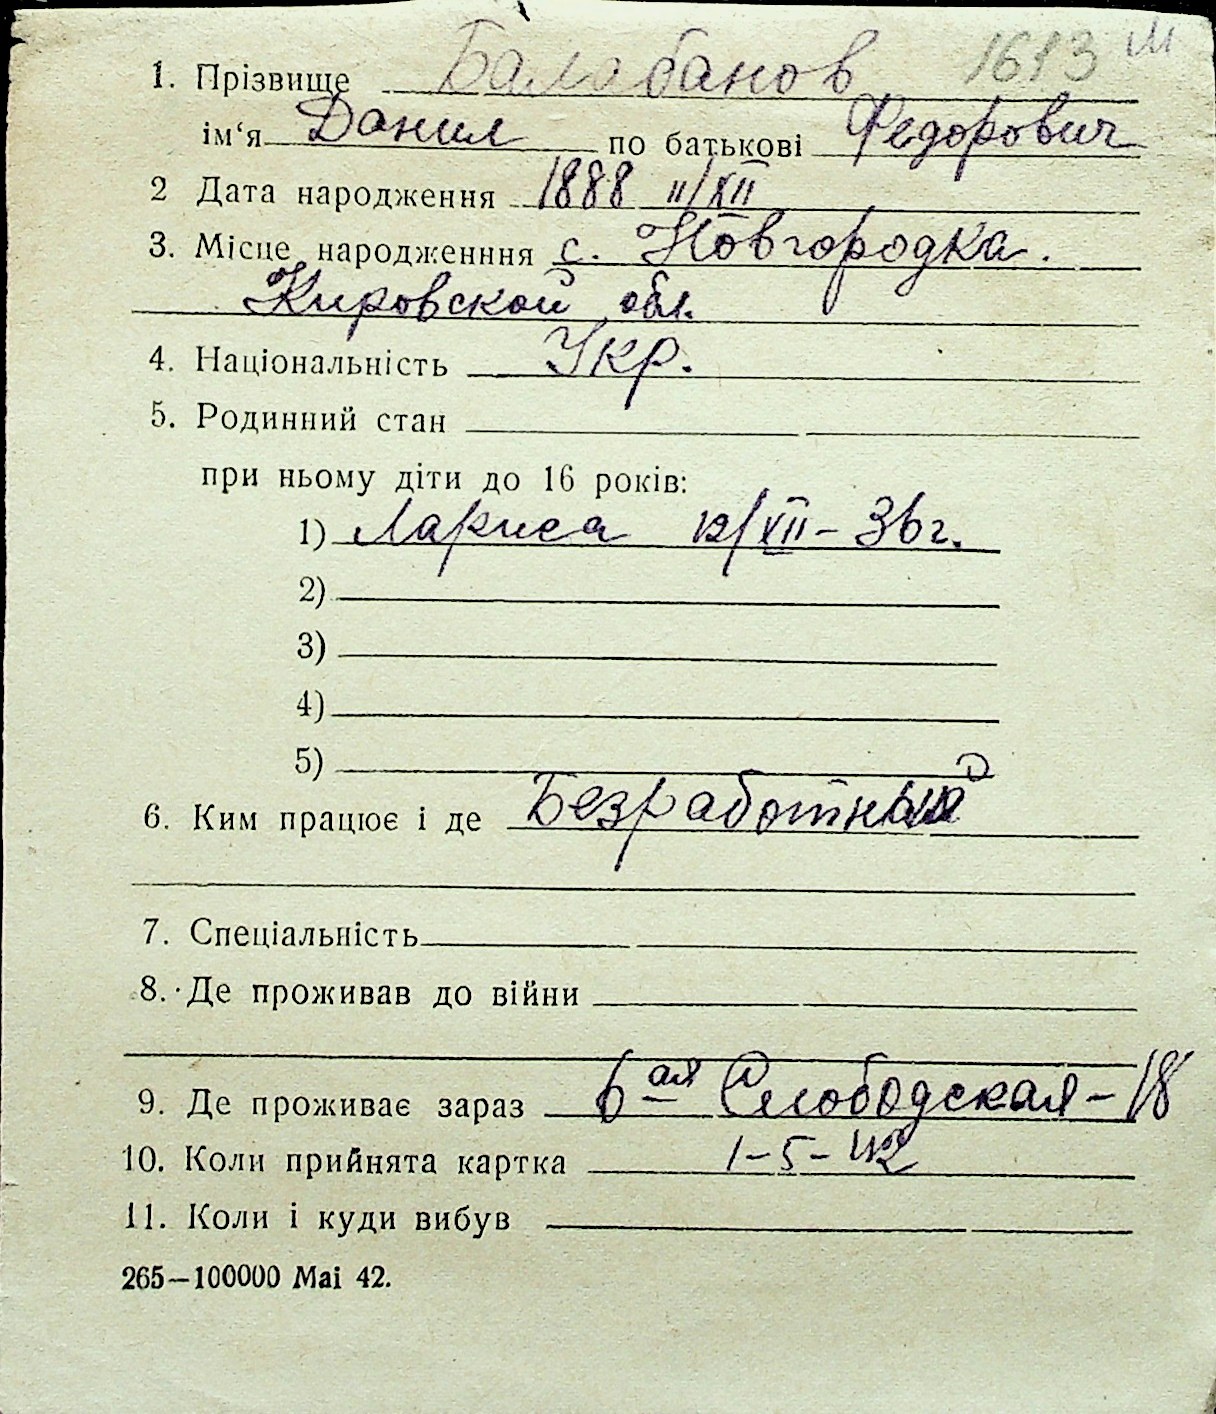 1613 М
1. Прізвище Балабанов
ім‘я Данил по батькові Федорович
2 Дата народження 1888 11/XII
3. Місце народженння с. Новгородка.
Кировской обл.
4. Національність Укр.
5. Родинний стан
при ньому діти до 16 років:
1) Лариса 12/XII – 36 г.
2)
3)
4)
5)
6. Ким працює і де Безработный
7. Спеціальність
8. Де проживав до війни
9. Де проживає зараз 6ая Слободская – 18
10. Коли прийнята картка 1–5–42
11. Коли і куди вибув
265—100000 Mai 42.